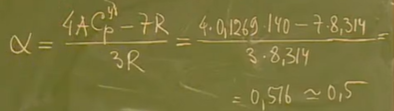 α = (4AC_p^уд − 7R)/(3R) = (4·0,1269·140 − 7·8,314)/(3·8,314) =
= 0,516 ≃ 0,5